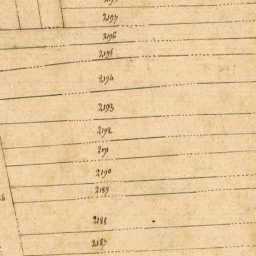 2197
2196
2195
2194
2193
2192
2190
2189
2188
2187